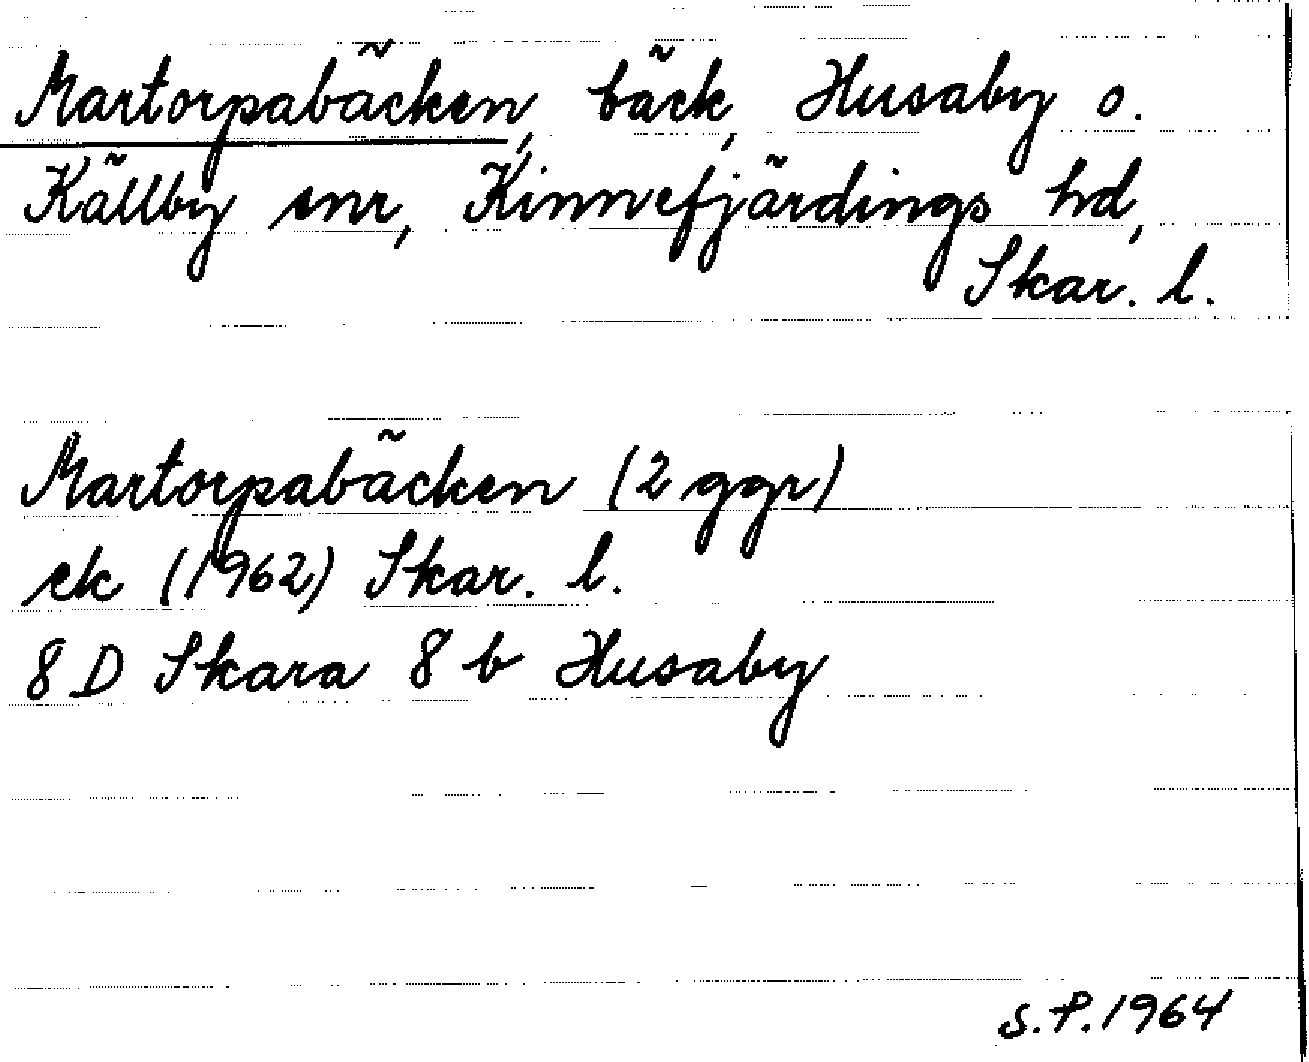 Martorpabäcken, bäck, Husaby o.
Källby snr, Kinnefjärdings hd,
Skar. l.
Martorpabäcken (2 ggr)
ek (1962) Skar. l.
8 D Skara 8 b Husaby
S.P. 1964